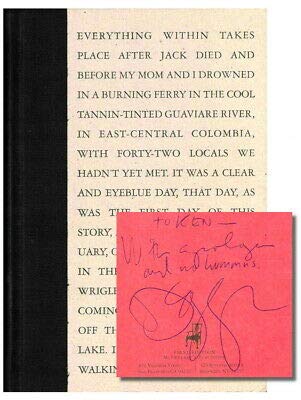 EVERYTHING WITHIN TAKES
PLACE AFTER JACK DIED AND
BEFORE MY MOM AND I DROWNED
IN A BURNING FERRY IN THE COOL
TANNIN-TINTED GUAVIARE RIVER,
IN EAST-CENTRAL COLOMBIA,
WITH FORTY-TWO LOCALS WE
HADN'T YET MET. IT WAS A CLEAR
AND EYEBLUE DAY, THAT DAY, AS
WAS THE FIRST DAY OF THIS
STORY,
UARY, O
IN THE
WRIGLE
COMING
OFF TH
LAKE. I
WALKIN
to KEN —
With apologies
and no hummus.
FIRST EDITION